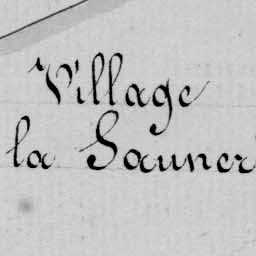 Village
la Sauner